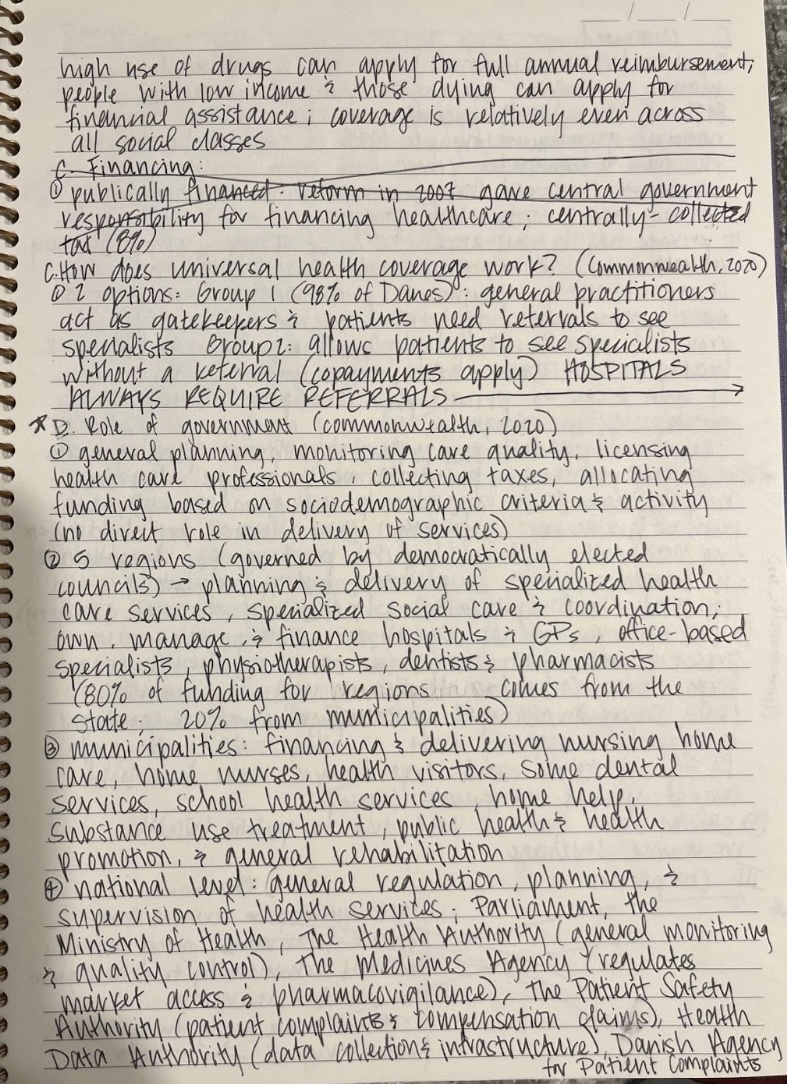 high use of drugs can apply for full annual reimbursement;
people with low income & those dying can apply for
financial assistance; coverage is relatively even across
all social classes
C. Financing:
① publically financed: reform in 2007 gave central government
responsibility for financing healthcare; centrally-collected
tax (8%)
C. How does universal health coverage work? (Commonwealth, 2020)
① 2 options: Group 1 (98% of Danes): general practitioners
act as gatekeepers & patients need referrals to see
specialists Group 2: allows patients to see specialists
without a referral (copayments apply) HOSPITALS
ALWAYS REQUIRE REFERRALS →
* D. Role of government (commonwealth, 2020)
① general planning, monitoring care quality, licensing
health care professionals, collecting taxes, allocating
funding based on sociodemographic criteria & activity
(no direct role in delivery of services)
② 5 regions (governed by democratically elected
councils) → planning & delivery of specialized health
care services, specialized social care & coordination;
own, manage, & finance hospitals & GPs, office-based
specialists, physiotherapists, dentists & pharmacists
(80% of funding for regions comes from the
state; 20% from municipalities)
③ municipalities: financing & delivering nursing home
care, home nurses, health visitors, some dental
services, school health services, home help,
substance use treatment, public health & health
promotion, & general rehabilitation
④ national level: general regulation, planning, &
supervision of health services; Parliament, the
Ministry of Health, The Health Authority (general monitoring
& quality control), The Medicines Agency (regulates
market access & pharmacovigilance), The Patient Safety
Authority (patient complaints & compensation claims), Health
Data Authority (data collection & infrastructure), Danish Agency
for Patient Complaints